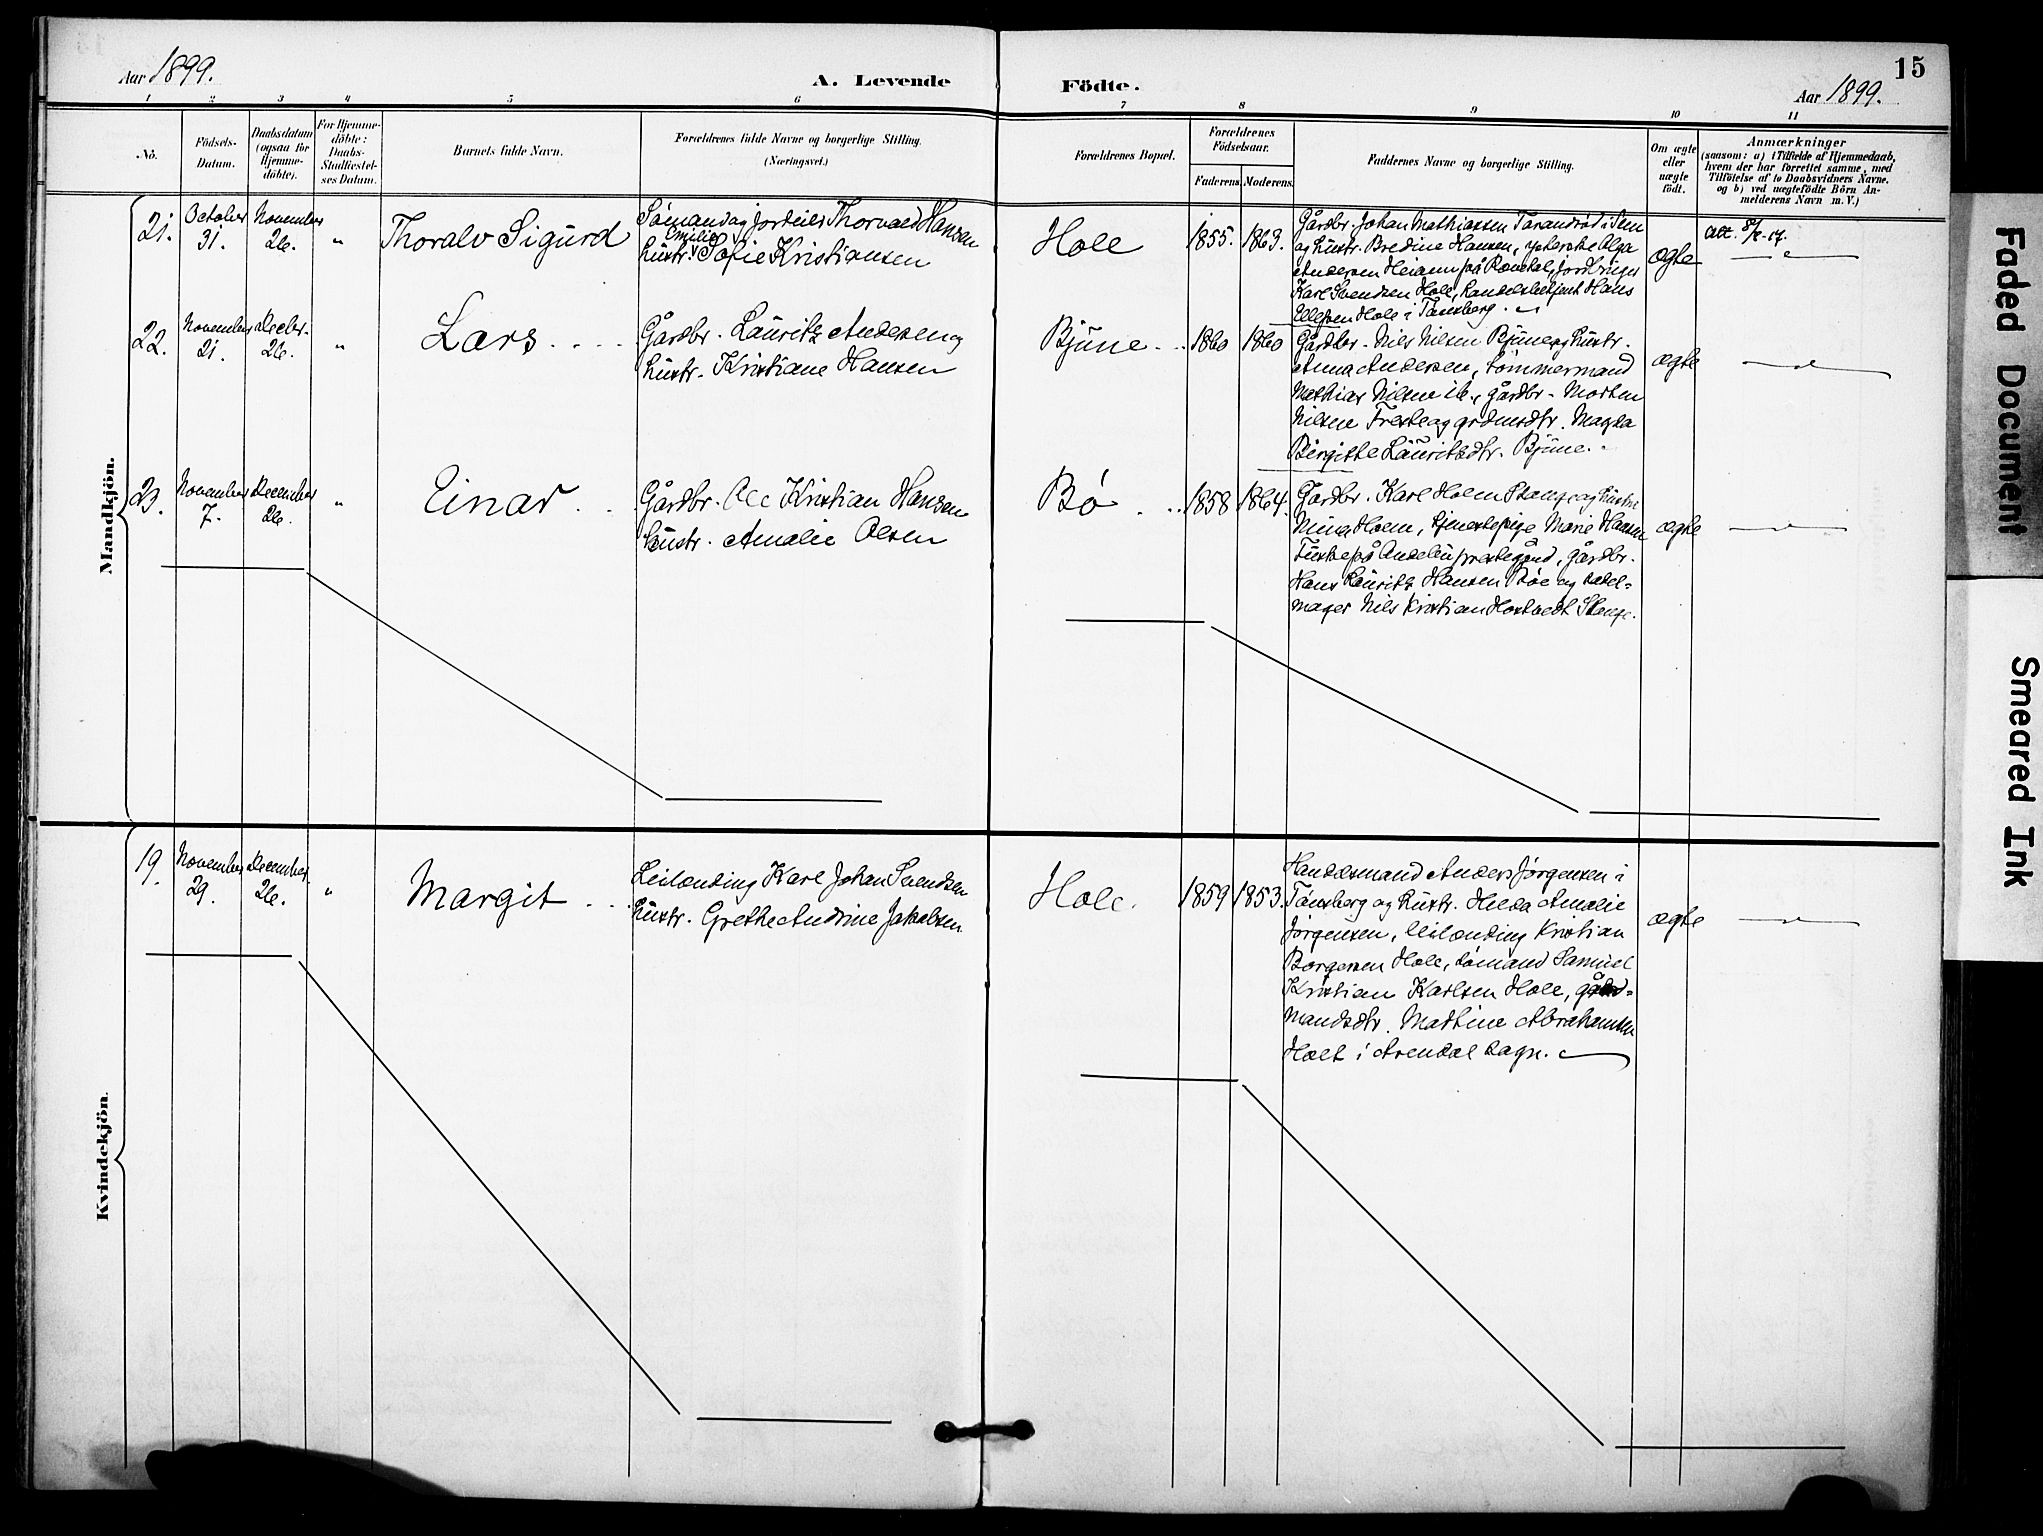 Aar 1899.
A. Levende
Födte.
15
Aar 1899.
1 2 3 4 5 6 7 8 9 10 11
No.
Födsels-
Datum.
Daabsdatum
(ogsaa for
Hjemme-
döbte).
For Hjemme-
döbte:
Daabs-
Stadfæstel-
ses Datum.
Barnets fulde Navn.
Forældrenes fulde Navne og borgerlige Stilling.
(Næringsvei.)
Forældrenes Bopæl.
Forældrenes
Födselsaar.
Faderens. Moderens.
Faddernes Navne og borgerlige Stilling.
Om ægte
eller
uægte
födt.
Anmærkninger
(saasom: a) i Tilfælde af Hjemmedaab,
hvem der har forrettet samme, med
Tilföielse af to Daabsvidners Navne,
og b) ved uægtefödte Börn An-
melderens Navn m. V.)
Mandkjön.
21.
October
31.
November
26.
"
Thoralv Sigurd
Sømand og jordeier Thorvald Hansen
Emilie
hustr. Sofie Kristiansen
Hole
1855. 1863.
Gårdbr. Johan Mathiassen Tarandrød i Sem
og hustr. Bredine Hansen, Olga
Andersen på
Karl Svendsen Hole, Handelsbetjent Hans
Ellefsen Hole i Tønsberg.
ægte
Att.
22.
November
21.
Decbr.
26.
"
Lars
Gårdbr. Lauritz Andersen og
hustr. Kristiane Hansen
Bjune
1860 1860
Gårdbr. Nils Nilsen Bjune og hustr.
Anna Andersen, tømmermand
Mathias Nilsen ib., gårdbr. Morten
Nilsen og Magda
Birgitte Lauritsdtr. Bjune.
ægte
23.
November
7.
December
26.
"
Einar
Gårdbr. Ole Kristian Hansen
hustr. Amalie Olsen
Bø
1858 1864.
Gårdbr. Karl Holm Stange og hustru
Mina Holm, tjenestepige Marie Hansen
på Andebu prestegård, gårdbr.
Hans Lauritz Hansen Bøe og sadel-
mager Nils Kristian Stange.
ægte
Kvindekjön.
19.
November
29.
December
26.
"
Margit
Leilending Karl Johan Svendsen
hustr. Grethe Andrine Jakobsen
Hole.
1859 1853.
Handelsmand Anders Jørgensen i
Tønsberg og hustr. Hilda Amalie
Jørgensen, leilending Kristian
Borgersen Hole, sømand Samuel
Kristian Karlsen Hole, gård-
mandsdtr. Mathine Abrahamsen
Holt i Arendal sogn.
ægte
Faded Document
Smeared Ink